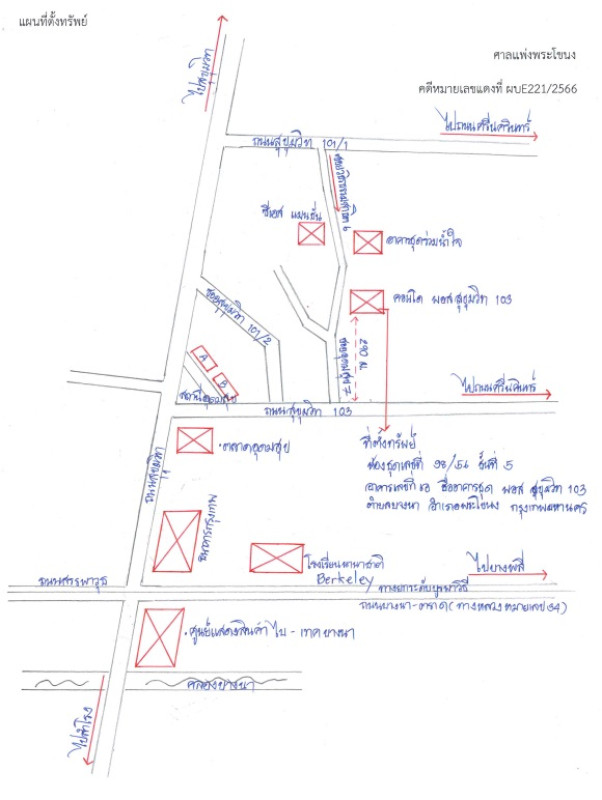 แผนที่ตั้งทรัพย์
ศาลแพ่งพระโขนง
คดีหมายเลขแดงที่ ผบE221/2566
ไปสุขุมวิท
ไปถนนศรีนครินทร์
ถนนสุขุมวิท 101/1
ซีเอส แมนชั่น
อาคารชุดร่วมน้ำใจ
คอนโด พอส สุขุมวิท 103
ซอยสุขุมวิท 101/2
290 ม.
ซอยอุดมสุข 7
A
B
สถานีอุดมสุข
ไปถนนศรีนครินทร์
ถนนสุขุมวิท 103
ตลาดอุดมสุข
ที่ตั้งทรัพย์
ห้องชุดเลขที่ 98/56 ชั้นที่ 5
อาคารเลขที่ ชื่ออาคารชุด พอส สุขุมวิท 103
ตำบลบางนา อำเภอพระโขนง กรุงเทพมหานคร
ถนนสุขุมวิท
ธนาคารกรุงเทพ
โรงเรียนนานาชาติ
Berkeley
ไปบางพลี
ถนนสรรพาวุธ
ทางยกระดับบูรพาวิถี
ถนนบางนา-ตราด (ทางหลวงหมายเลข 34)
ศูนย์แสดงสินค้า ไบ - เทค บางนา
คลองบางนา
ไปสำโรง